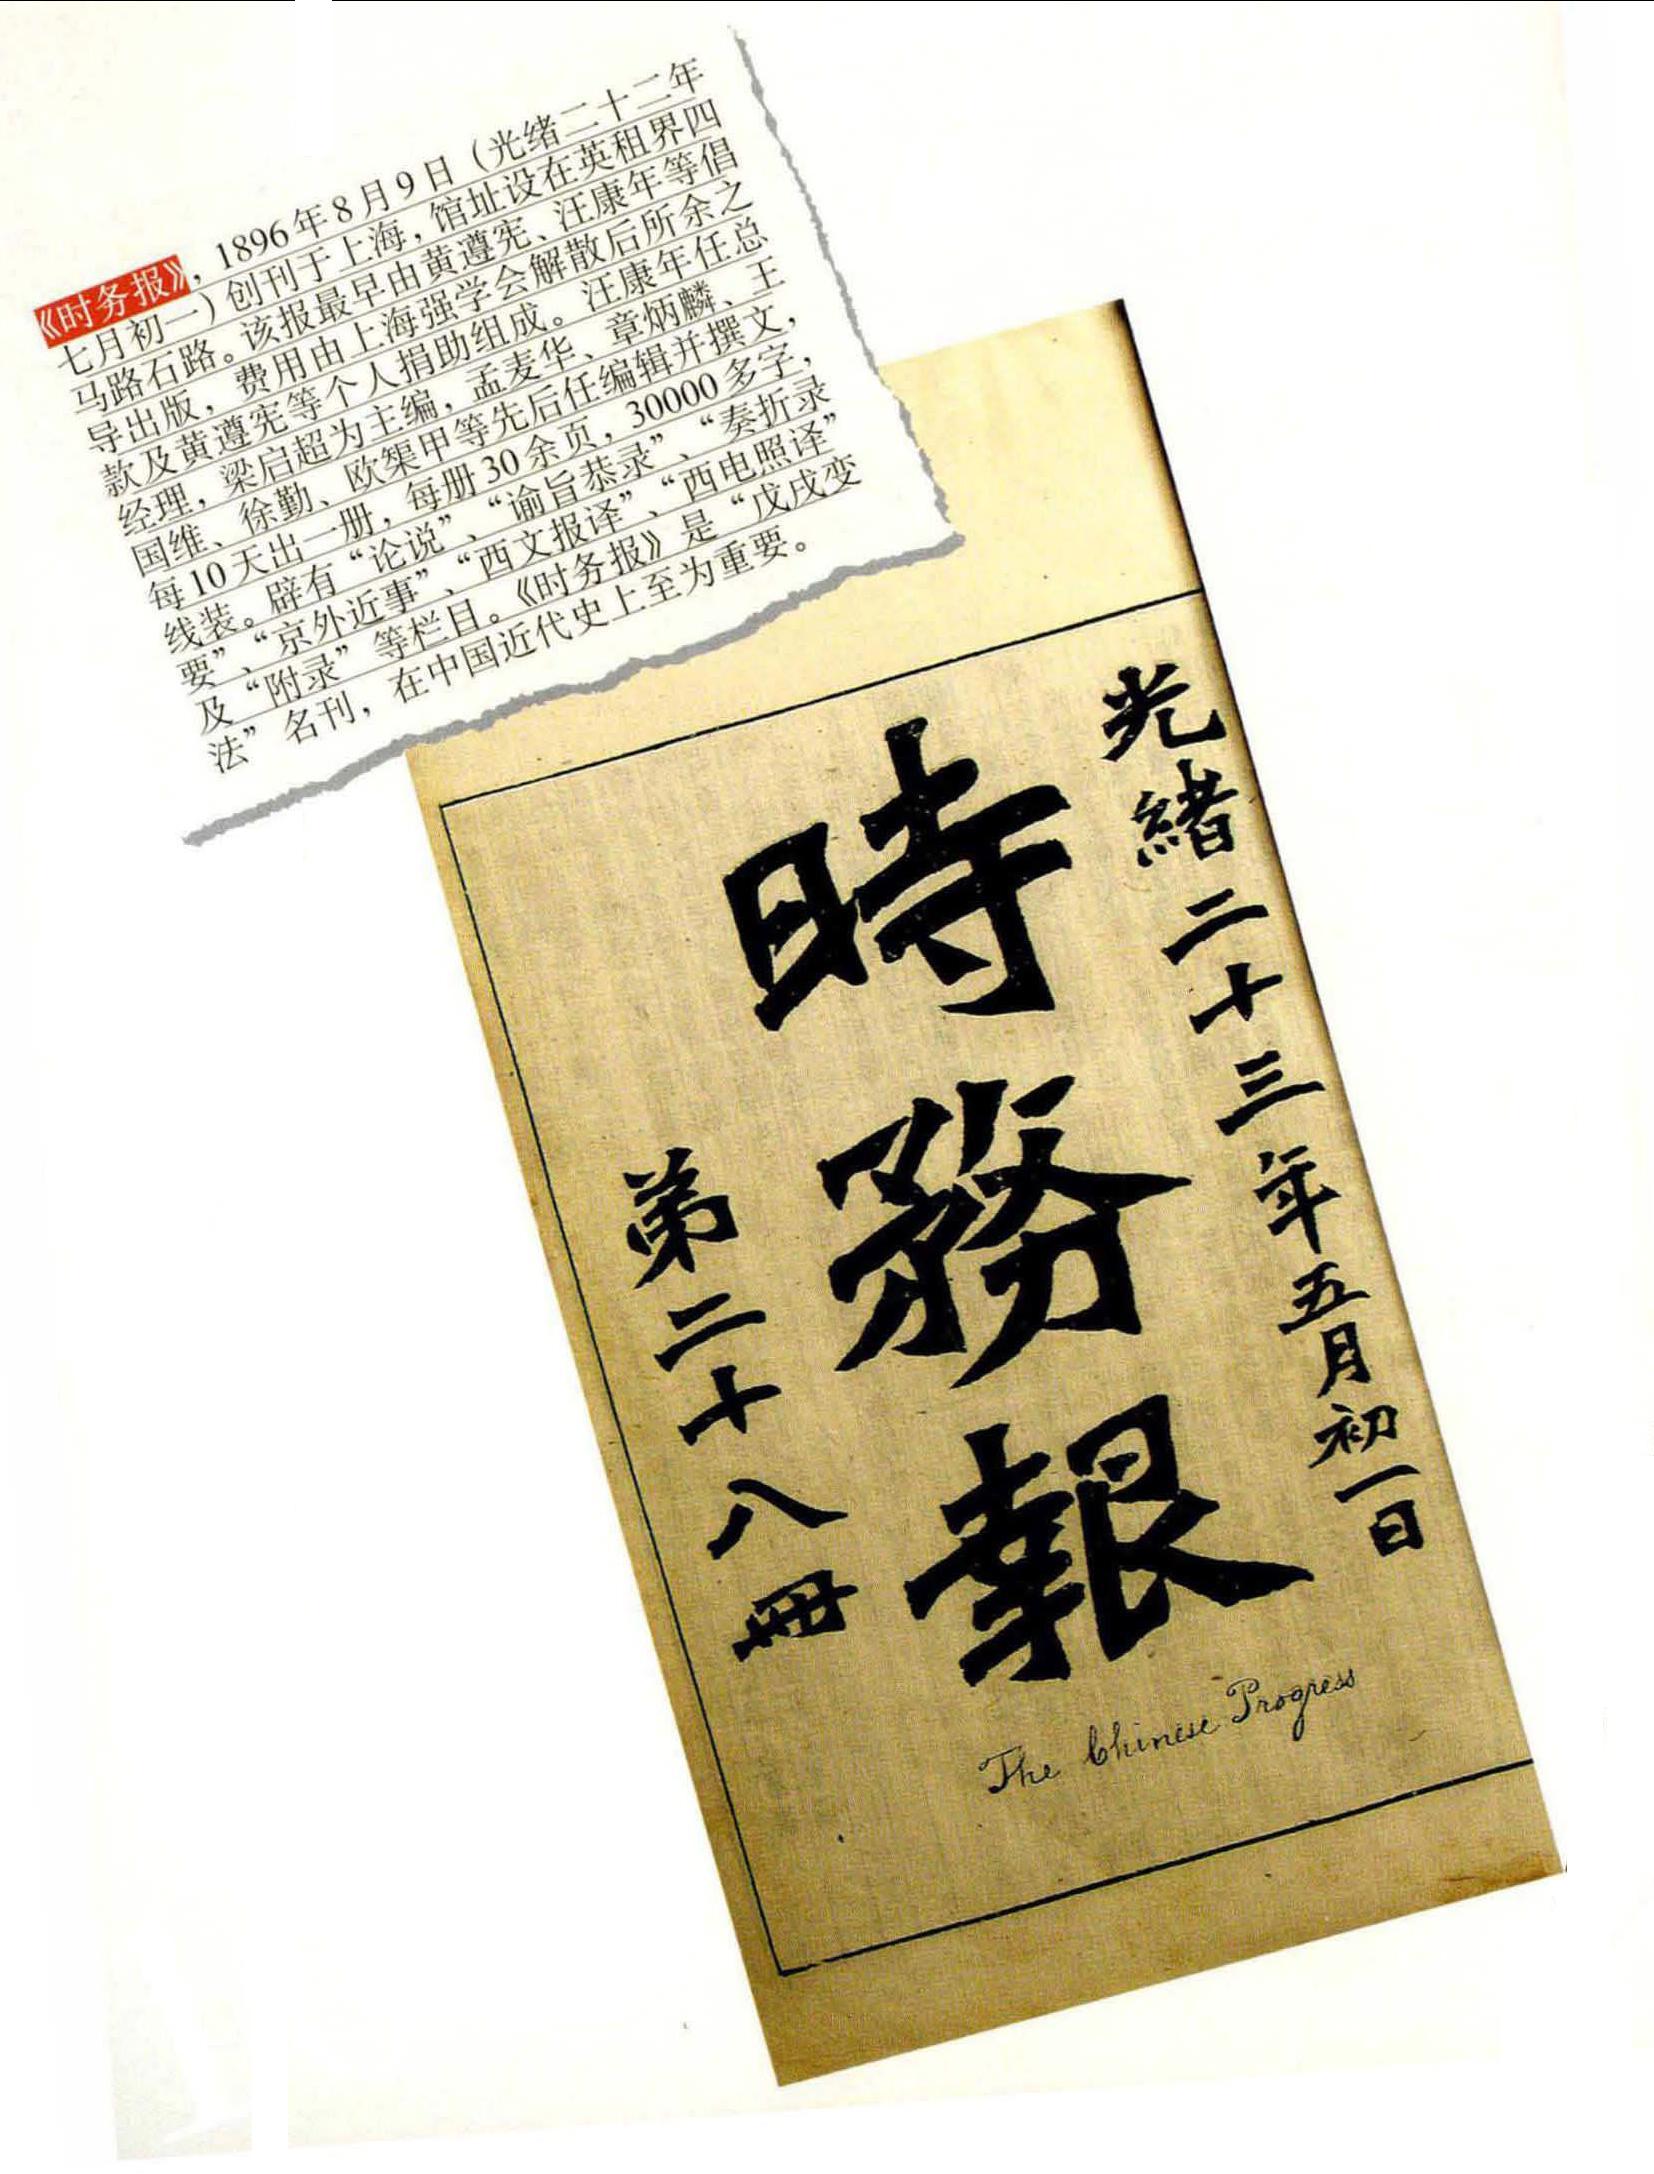 《时务报》，1896年8月9日（光绪二十二年
七月初一）创刊于上海，馆址设在英租界四
马路石路。该报最早由黄遵宪、汪康年等倡
导出版，费用由上海强学会解散后所余之
款及黄遵宪等个人捐助组成。汪康年任总
经理，梁启超为主编，孟麦华、章炳麟、王
国维、徐勤、欧榘甲等先后任编辑并撰文，
每10天出一册，每册30余页，30000多字，
线装。辟有“论说”、“谕旨恭录”、“奏折录
要”、“京外近事”、“西文报译”、“西电照译”
及“附录”等栏目。《时务报》是“戊戌变
法”名刊，在中国近代史上至为重要。
光緒二十三年五月初一日
時務報
第二十八冊
The Chinese Progress